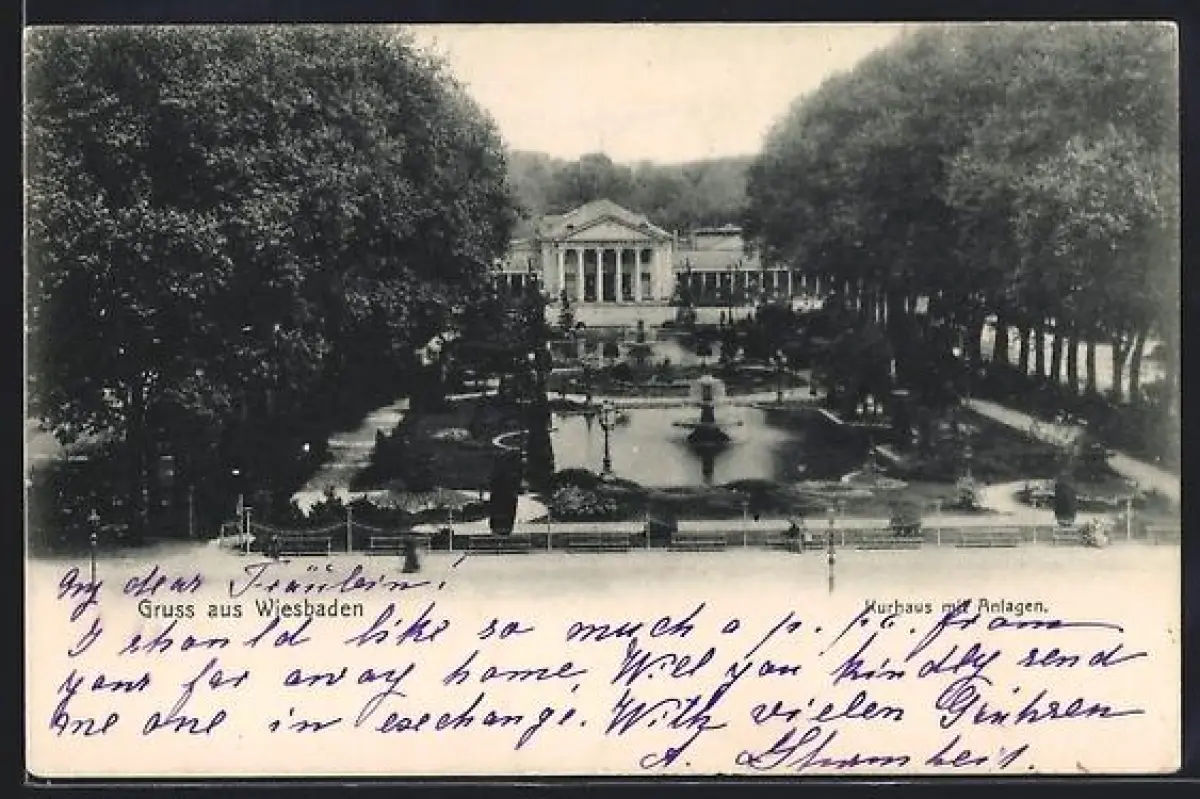 My dear Fräulein!
Gruss aus Wiesbaden
Kurhaus mit Anlagen.
I should like so much a p. p. c. from
your far away home. Will you kindly send
me one in exchange. With vielen Grühsen
A.